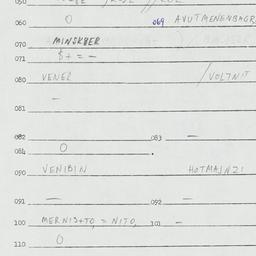 050
060 O 069 AVUTMENENBAGR
070 MINSKBER
071 $ + = -
080 VENER / VOLTNIT
081 -
082 083 -
084 O
090 VENIBIN HOTMAINZI
091 - 092 -
100 MERNIS+TO, = NITO, 101 -
110 O